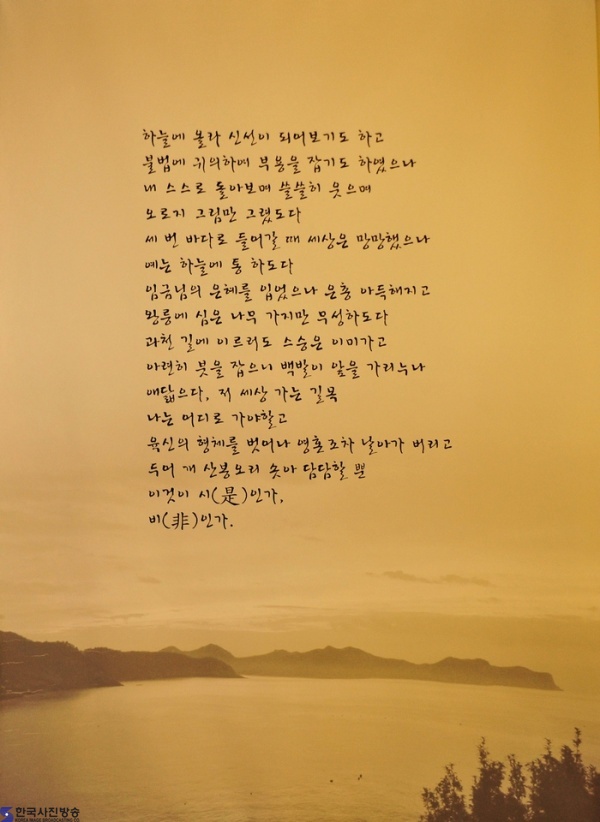 하늘에 올라 신선이 되어보기도 하고
불법에 귀의하여 부용을 잡기도 하였으나
내 스스로 돌아보며 쓸쓸히 웃으며
오로지 그림만 그렸도다
세 번 바다로 들어갈 때 세상은 망망했으나
예는 하늘에 통 하도다
임금님의 은혜를 입었으나 은총 아득해지고
왕릉에 심은 나무 가지만 무성하도다
과천 길에 이르러도 스승은 이미가고
아련히 붓을 잡으니 백발이 앞을 가리누나
애닯으다, 저 세상 가는 길목
나는 어디로 가야할고
육신의 형체를 벗어나 영혼조차 날아가 버리고
두어 개 산봉오리 솟아 담담할 뿐
이것이 시(是)인가,
비(非)인가.
한국사진방송